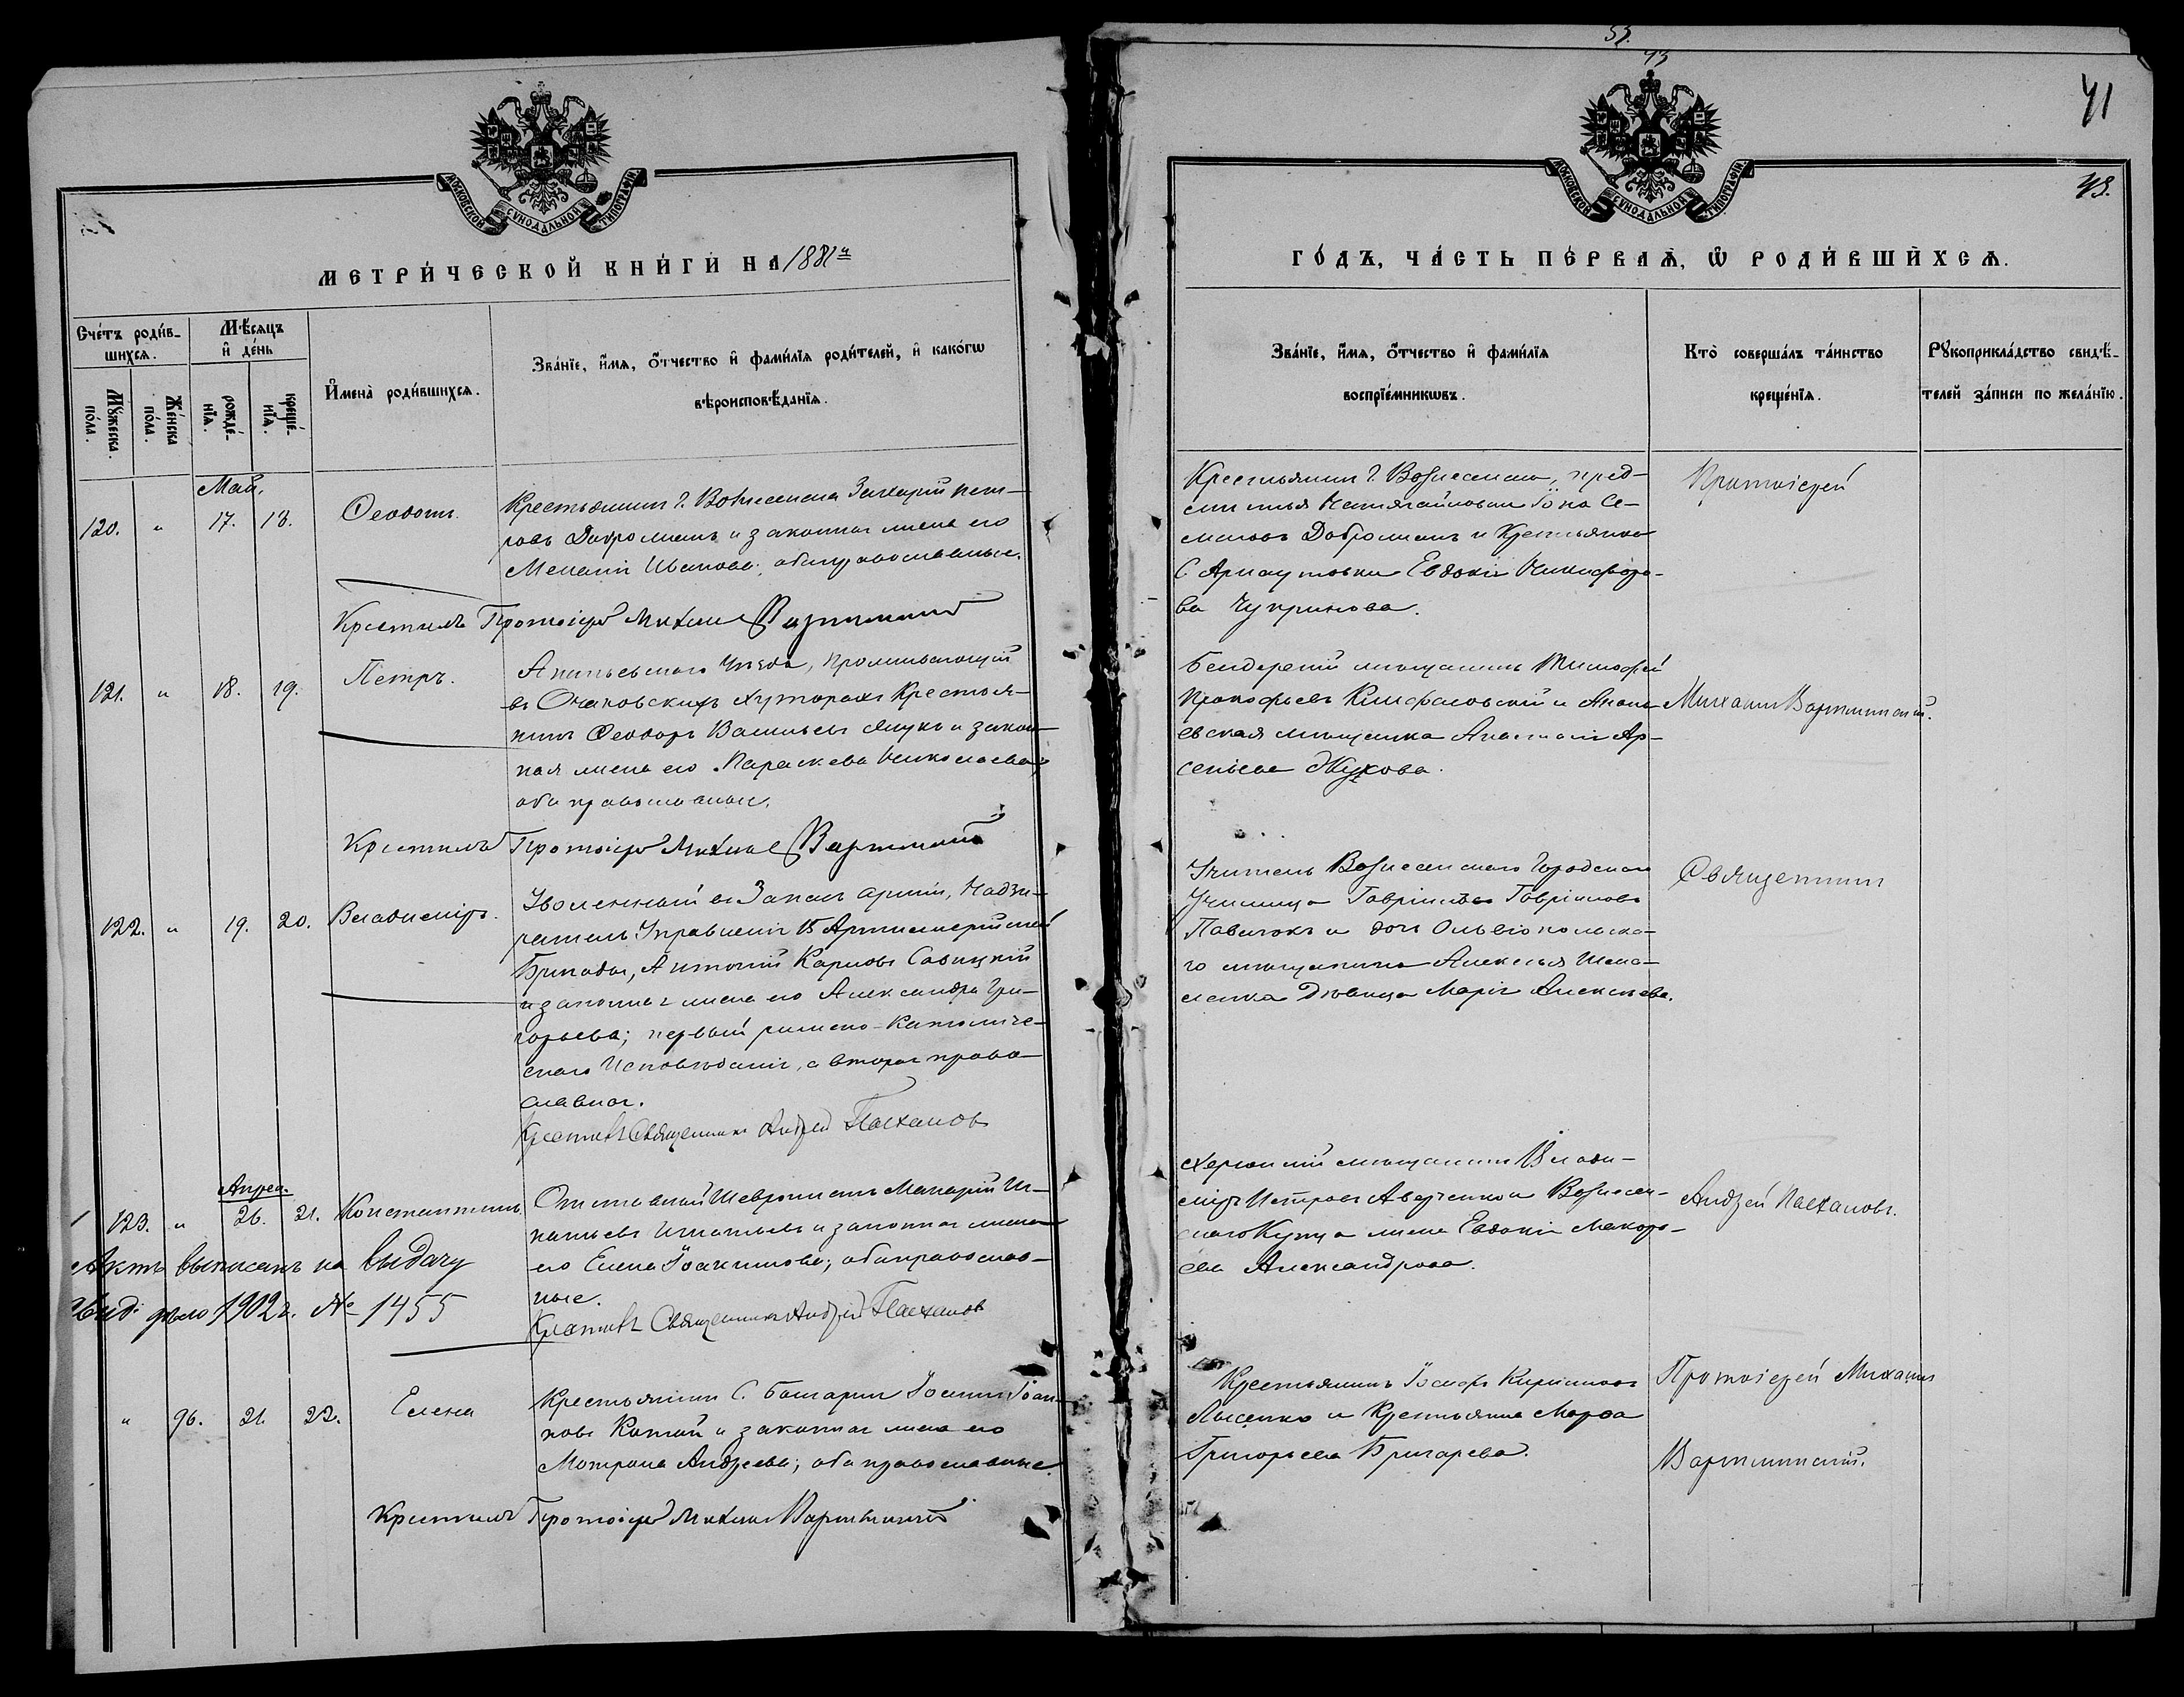 МОСКОВСКОЙ СѴНОДАЛЬНОЙ ТИПОГРАФІИ
МЕТРИ́ЧЕСКОЙ КНИ́ГИ НА 1881й
Сче́тъ роди́в-
шихсѧ.
Мꙋ́жеска по́ла.
Же́нска по́ла.
Мѣ́сѧцъ
и҆ де́нь
рожде́-
нїѧ.
креще́-
нїѧ.
И҆мена̀ роди́вшихсѧ.
Зва́нїе, и҆́мѧ, о҆́тчество и҆ фами́лїѧ роди́телей, и҆ како́гѡ
вѣроисповѣ́данїѧ.
Май.
120. " 17. 18. Ѳеодотъ.
Крестьянинъ г. Вознесенска Захарій Пет-
ровъ Доброшанъ и законная жена его
Меланія Иванова; оба православные.
Крестилъ Протоіерей Михаилъ Вартминскій
121. " 18. 19. Петръ.
Ананьевскаго Уѣзда, проживающій
въ Очаковскихъ хуторахъ Крестья-
нинъ Ѳеодоръ Васильевъ и закон-
ная жена его Параскева Николаева;
оба православные.
Крестилъ Протоіерей Михаилъ Вартминскій
122. " 19. 20. Владиміръ.
Уволенный въ Запасъ арміи, Надзи-
ратель Управленія 15 Артиллерійской
Бригады, Антоній Карловъ Савицкій
и законная жена его Александра Гри-
горьева; первый римско-Католиче-
скаго Исповѣданія, а вторая право-
славная.
Крестилъ Священникъ Андрей Пасхаловъ
Апрел.
123. " 26. 21. Константинъ
Отставной Макарій Иг-
натьевъ Игнатьевъ и законная жена
его Елена Іоакимова; оба православ-
ные.
Крестилъ Священникъ Андрей Пасхаловъ
Актъ выписанъ на выдачу
свид. дѣло 1902 г. № 1455
" 96. 21. 22. Елена
Крестьянинъ С. Болгарки Іоаннъ Іоан-
новъ и законная жена его
Матрона Андреева; оба православные.
Крестилъ Протоіерей Михаилъ Вартминскій
53.
43
41
43.
МОСКОВСКОЙ СѴНОДАЛЬНОЙ ТИПОГРАФІИ
ГО́ДЪ, ЧА́СТЬ ПЕ́РВАѦ, Ѡ҆ РОДИ́ВШИХСѦ.
Зва́нїе, и҆́мѧ, о҆́тчество и҆ фами́лїѧ
воспрїе́мникѡвъ.
Кто̀ соверша́лъ та́инство
креще́нїѧ.
Рꙋкоприкла́дство свидѣ́-
телей за́писи по жела́нїю.
Крестьянинъ г. Вознесенска, пред-
мѣстья Іона Се-
меновъ Доброшанъ и Крестьянка
С. Арнаутовки Евдокія Никифоро-
ва Чупринова.
Протоіерей
Бендерскій мѣщанинъ Тимоѳей
Прокофьевъ и Ананьевская мѣщанка Анастасія Ар-
сеньева Жукова.
Михаилъ Вартминскій.
Учитель Вознесенскаго Городскаго
Училища Гавріилъ Гавріиловъ
и дочь Ольвіопольска-
го мѣщанина Алексѣя
дѣвица Марія Алексѣева.
Священникъ
Херсонскій мѣщанинъ Влади-
міръ Петровъ и Вознесен-
скаго Купца жена Евдокія Макарь-
ева Александрова.
Андрей Пасхаловъ.
Крестьянинъ Іосифъ Кирилловъ
Лысенко и Крестьянка Марѳа
Григорьева Бригарева.
Протоіерей Михаилъ
Вартминскій.